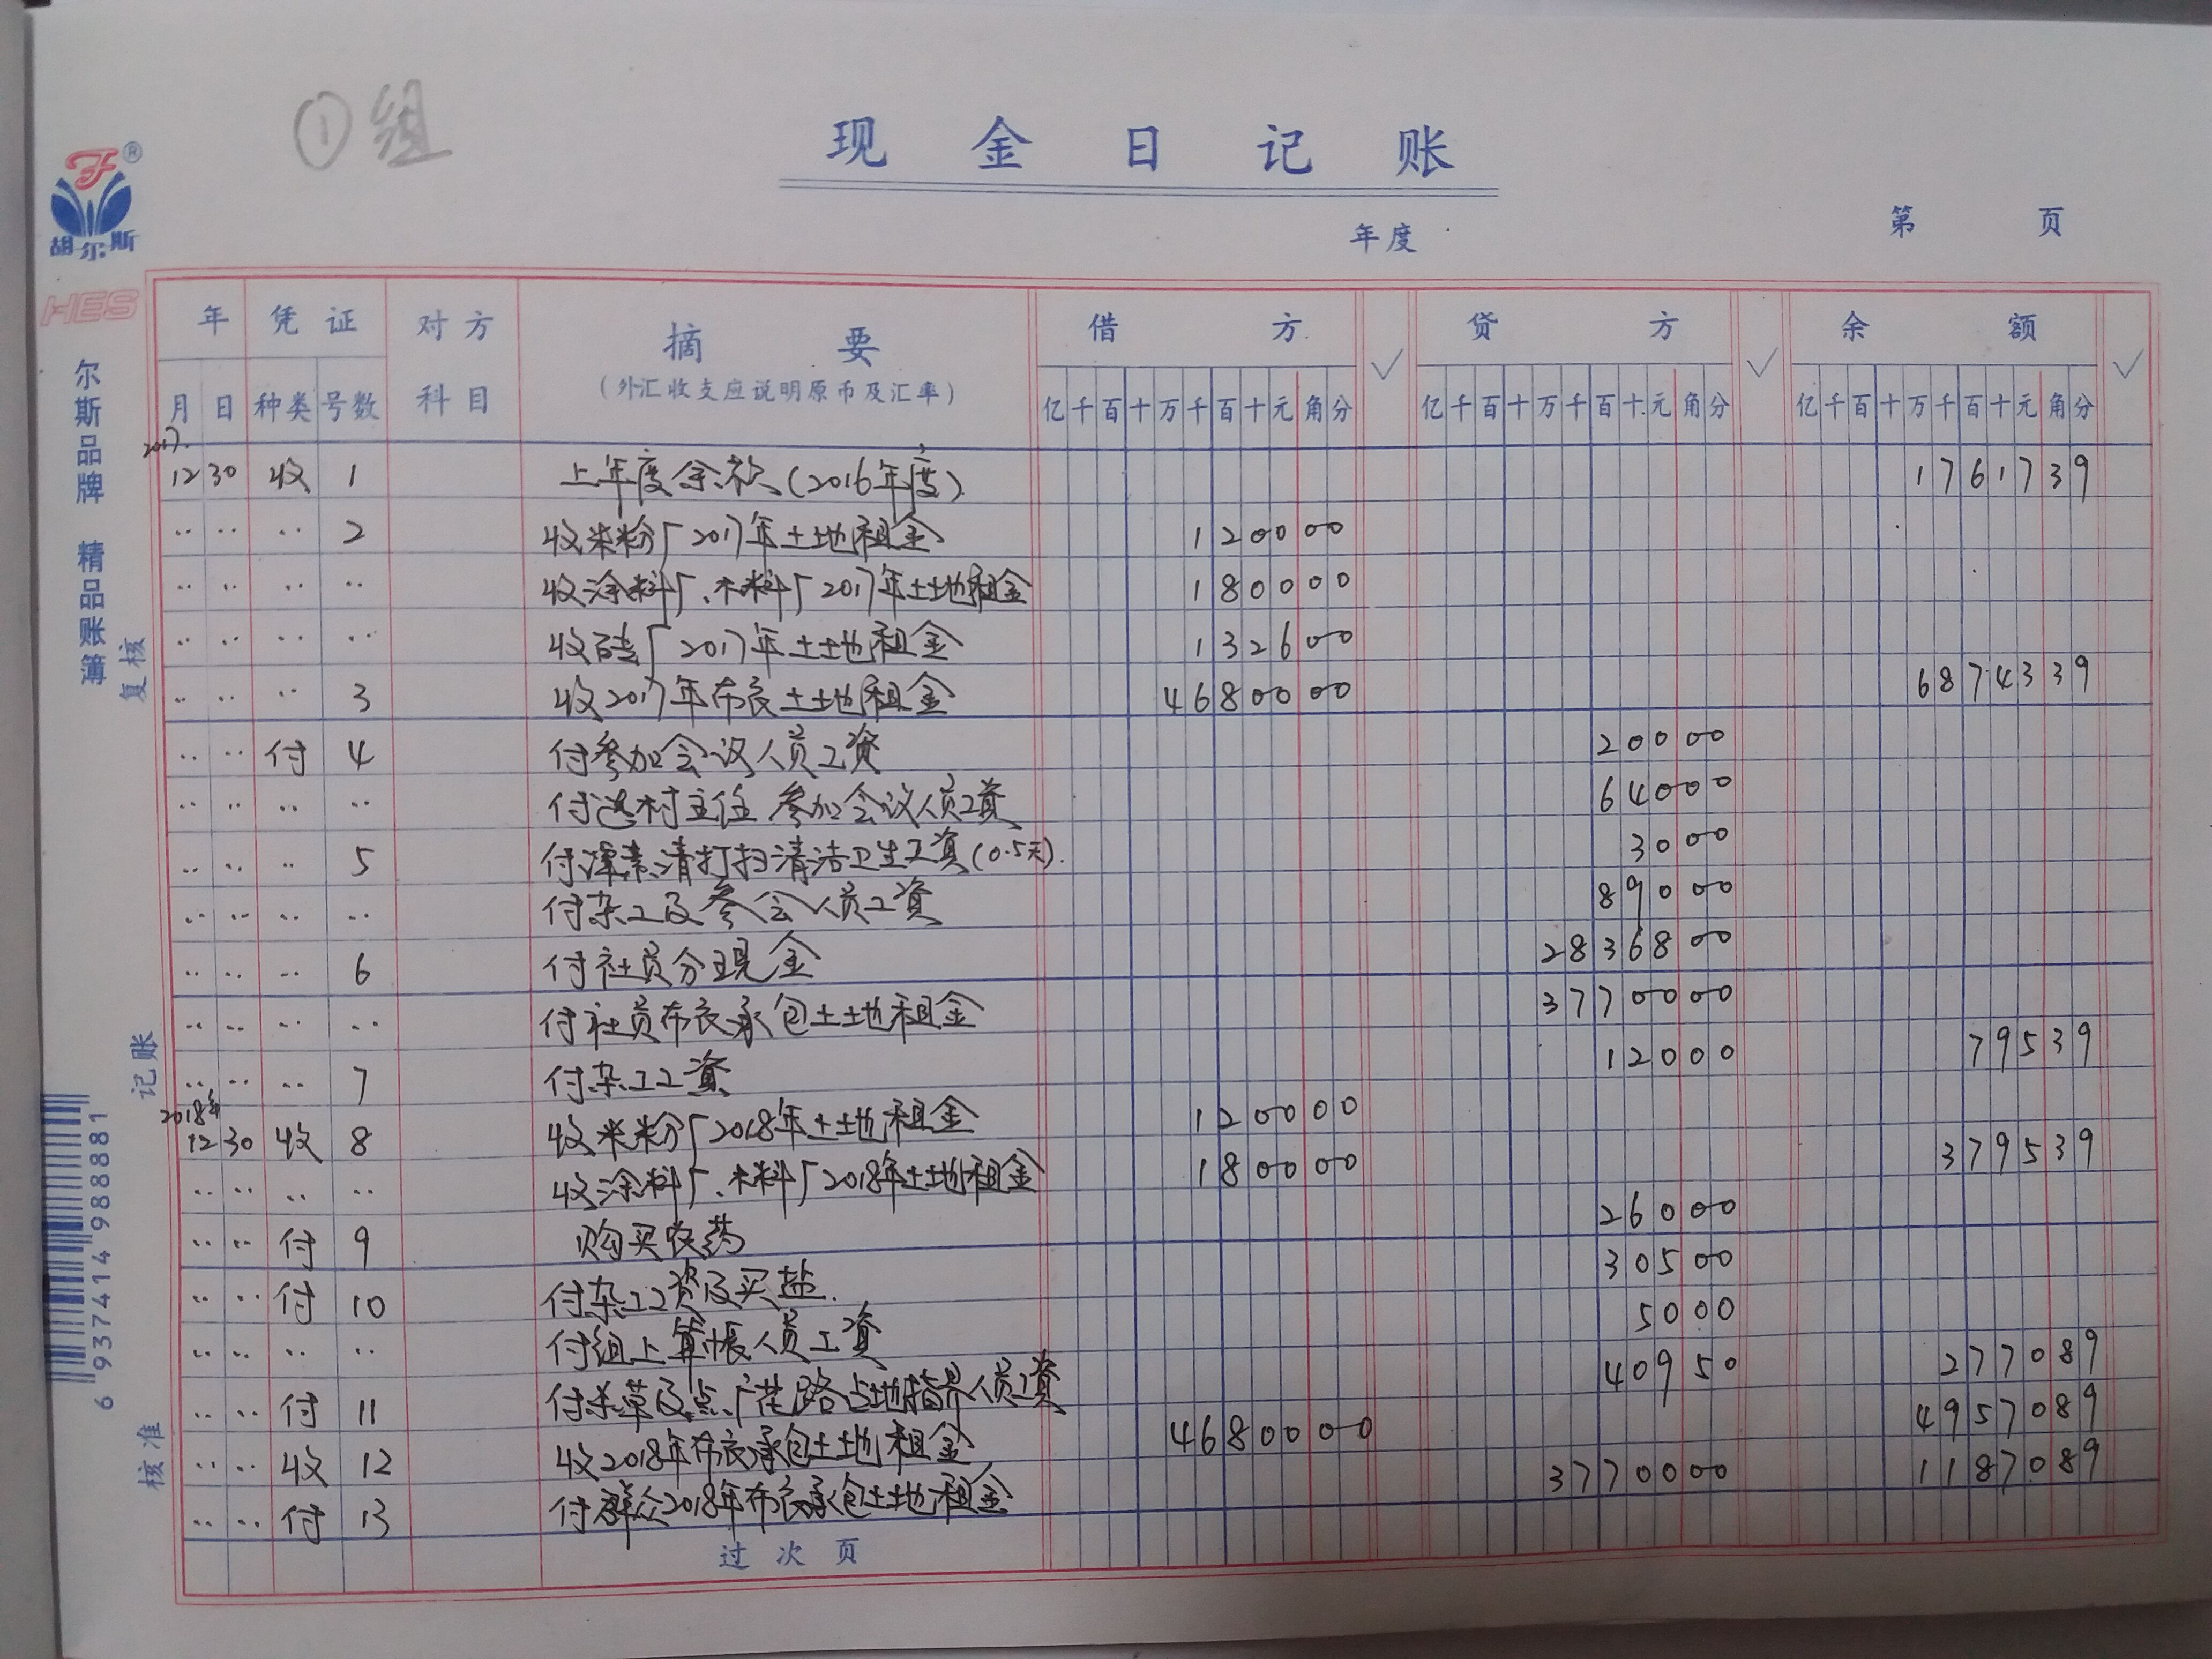 ①组
现金日记账
年度
第 页
胡尔斯
HES
尔斯品牌 精品账簿
复核
记账
核准
6 937414 988881
年 凭证 对方科目 摘要 借方 ✓ 贷方 ✓ 余额 ✓
月 日 种类 号数 (外汇收支应说明原币及汇率) 亿千百十万千百十元角分 亿千百十万千百十元角分 亿千百十万千百十元角分
2017.
12 30 收 1 上年度余款(2016年度) 1761739
〃 〃 〃 2 收米粉厂2017年土地租金 120000
〃 〃 〃 〃 收涂料厂、木料厂2017年土地租金 180000
〃 〃 〃 〃 收砖厂2017年土地租金 132600
〃 〃 〃 3 收2017年布衣土地租金 4680000 6874339
〃 〃 付 4 付参加会议人员工资 20000
〃 〃 〃 〃 付选村主任参加会议人员工资 64000
〃 〃 〃 5 付清打扫清洁卫生工资(0.5天). 3000
〃 〃 〃 〃 付杂工及参会人员工资 89000
〃 〃 〃 6 付社员分现金 2836800
〃 〃 〃 〃 付社员布衣承包土地租金 3770000
〃 〃 〃 7 付杂工工资 12000 79539
2018年
12 30 收 8 收米粉厂2018年土地租金 120000
〃 〃 〃 〃 收涂料厂、木料厂2018年土地租金 180000 379539
〃 〃 付 9 购买农药 26000
〃 〃 付 10 付杂工工资及买盐. 30500
〃 〃 〃 〃 付组上算帐人员工资 5000
〃 〃 付 11 付杀草及点广花路占地指界人员工资 40950 277089
〃 〃 收 12 收2018年布衣承包土地租金 4680000 4957089
〃 〃 付 13 付群众2018年布衣承包土地租金 3770000 1187089
过次页